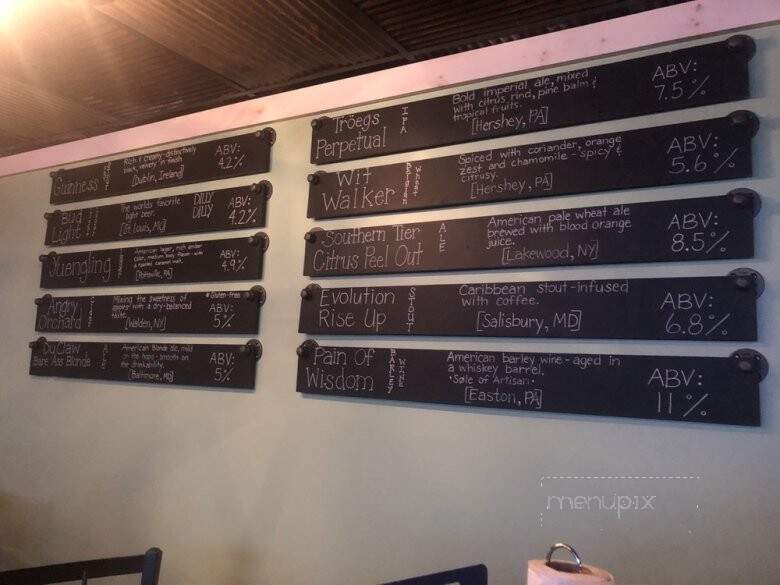 Guinness
STOUT
Rich & creamy-distinctively
black, velvety in finish
[Dublin, Ireland]
ABV:
4.2%
Bud
Light
The worlds favorite
light beer.
[St. Louis, MO]
DILLY
DILLY
ABV:
4.2%
Yuengling
American lager, rich amber
color, medium body flavor-with
a roasted caramel malt.
[Pottsville, PA]
ABV:
4.9%
Angry
Orchard
Mixing the sweetness of
apples with a dry-balanced
taste.
[Walden, NY]
*Gluten-free
ABV:
5%
DuClaw
Bare Ass Blonde
ALE
American blonde ale, mild
on the hops-smooth on
the drinkability.
[Baltimore, MD]
ABV:
5%
Tröegs
Perpetual
IPA
Bold imperial ale, mixed
with citrus rind, pine balm &
tropical fruits.
[Hershey, PA]
ABV:
7.5%
Wit
Walker
Belgian
Wheat
Spiced with coriander, orange
zest and chamomile-spicy &
citrusy.
[Hershey, PA]
ABV:
5.6%
Southern Tier
Citrus Peel Out
ALE
American pale wheat ale
brewed with blood orange
juice.
[Lakewood, NY]
ABV:
8.5%
Evolution
Rise Up
STOUT
Caribbean stout-infused
with coffee.
[Salisbury, MD]
ABV:
6.8%
Pain Of
Wisdom
BARLEY
WINE
American barley wine-aged in
a whiskey barrel.
•Sole of Artisan•
[Easton, PA]
ABV:
11%
menupix